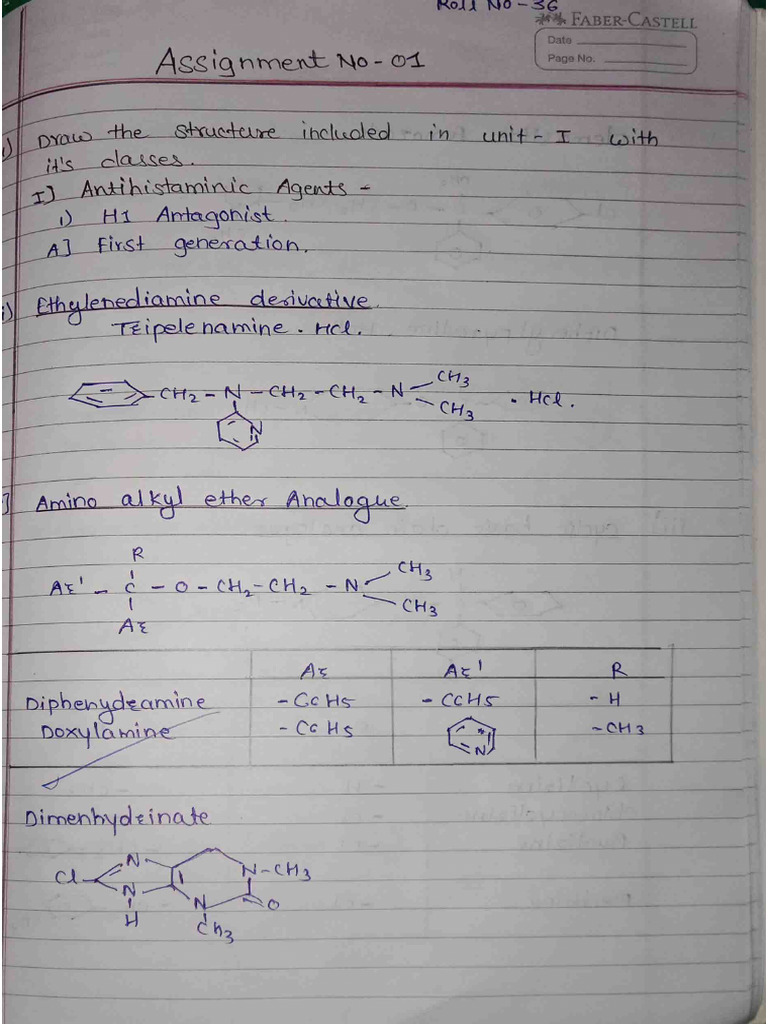 Roll No - 36
FABER-CASTELL
Date
Page No.
Assignment No - 01
1) Draw the structure included in unit - I with
it's classes.
I] Antihistaminic Agents -
1) H1 Antagonist.
A] First generation.
i) Ethylenediamine derivative.
Tripelenamine . Hcl.
CH2 - N - CH2 - CH2 - N CH3
CH3 . Hcl.
N
] Amino alkyl ether Analogue.
R
Ar' - C - O - CH2 - CH2 - N CH3
CH3
Ar
Ar Ar' R
Diphenydramine - C6H5 - C6H5 - H
Doxylamine - C6H5 N - CH3
Dimenhydrinate
Cl N N - CH3
N N O
H CH3